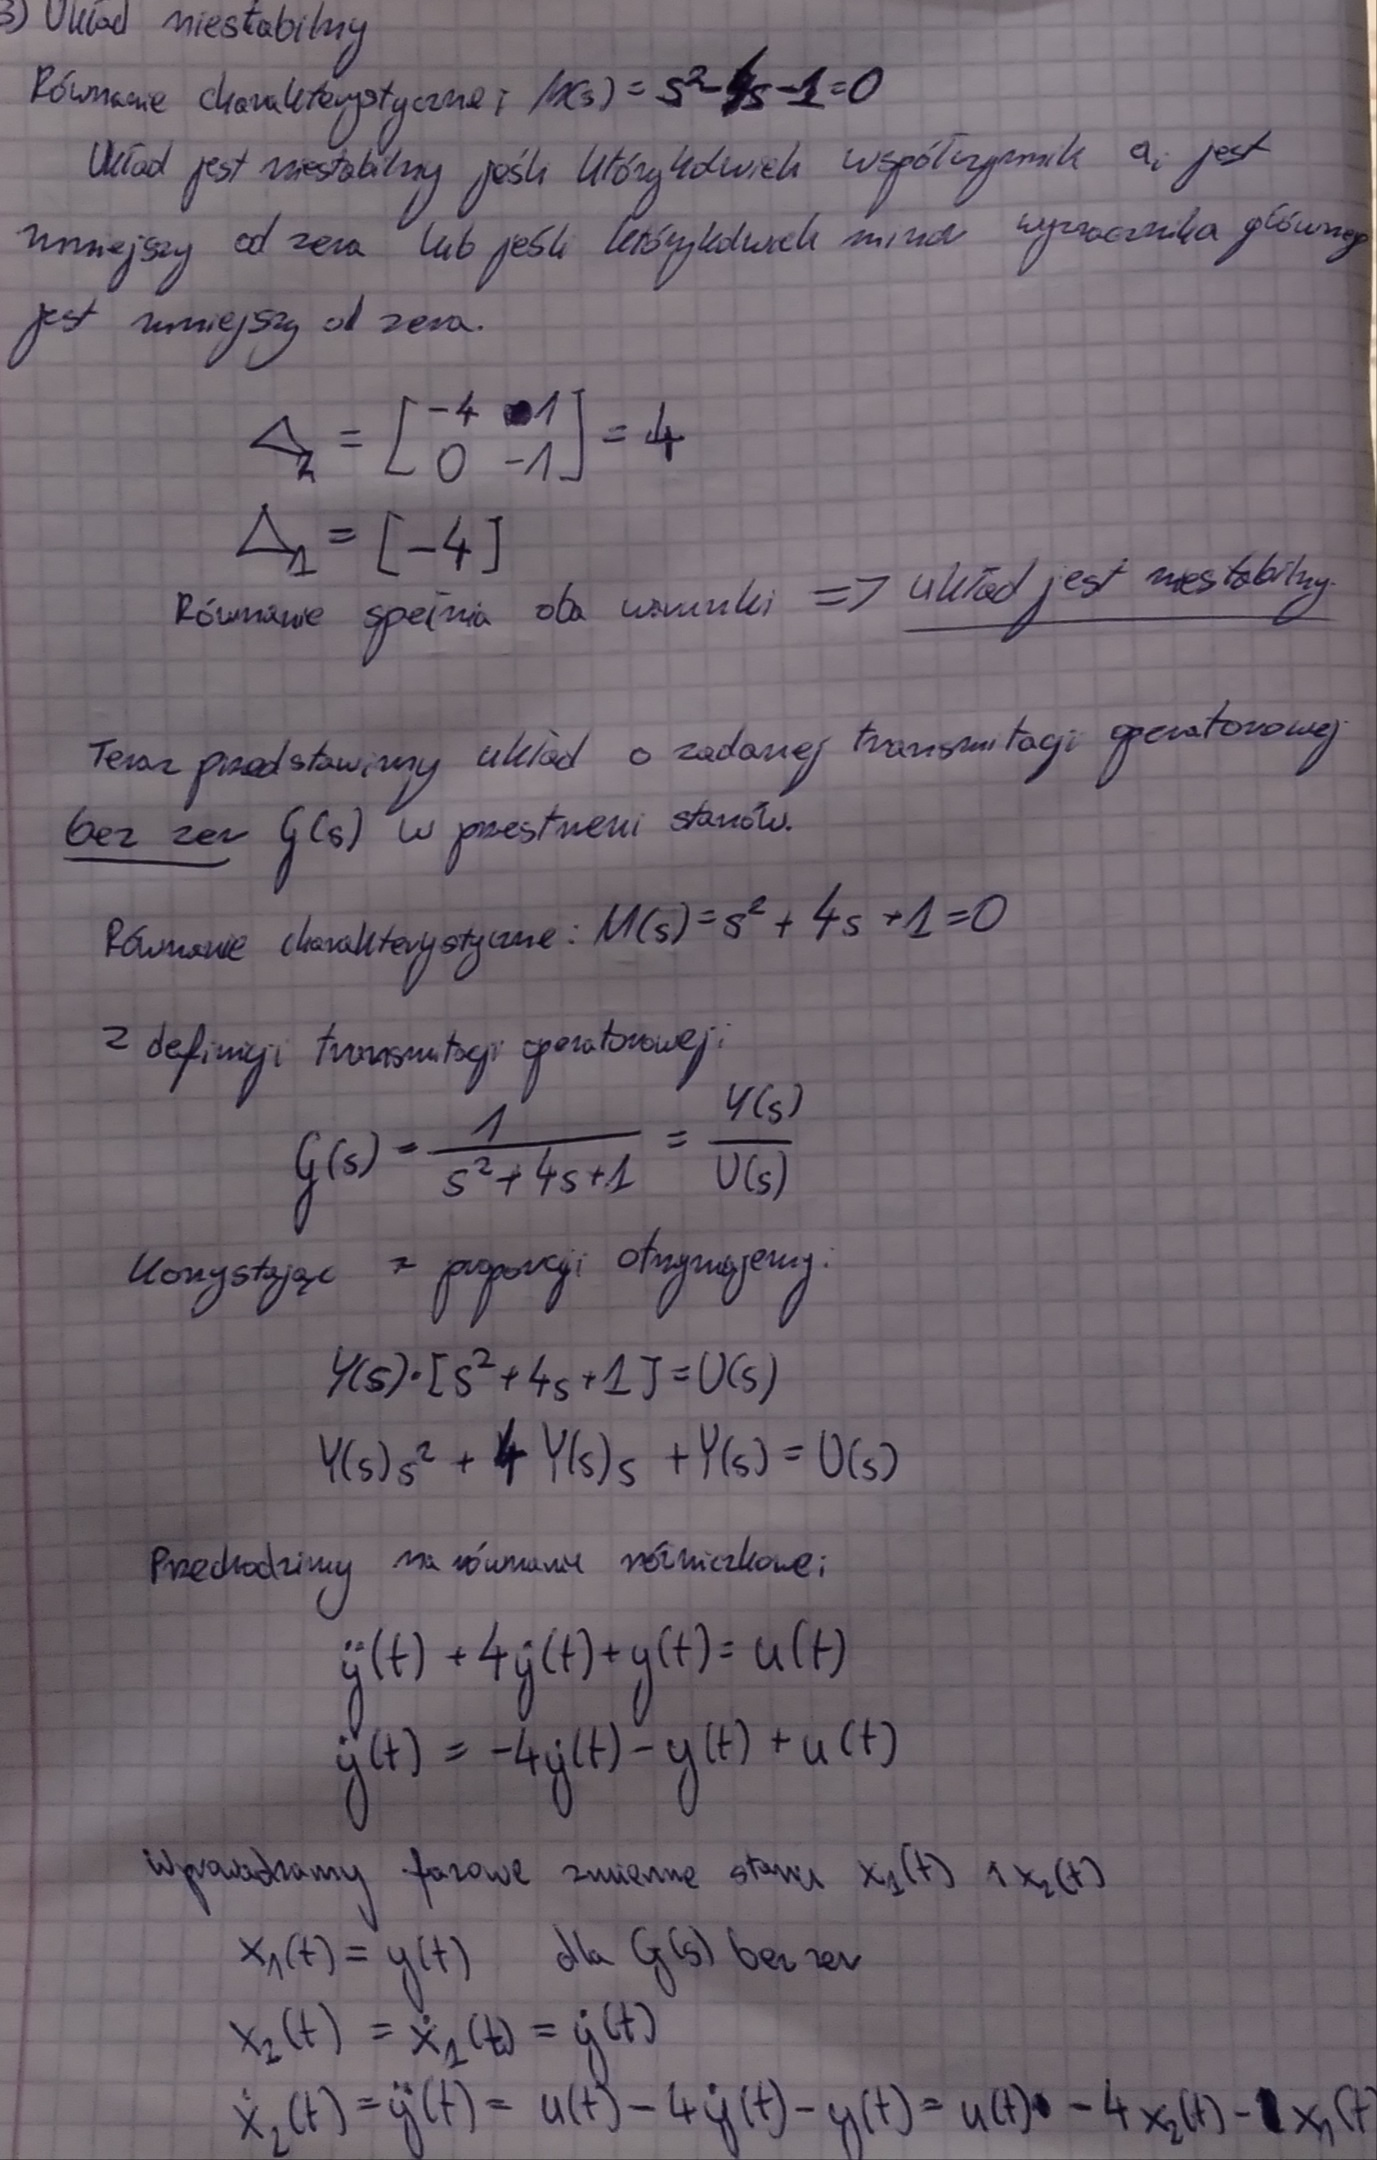 3) Układ niestabilny
Równanie charakterystyczne: M(s) = s² - 4s - 1 = 0
Układ jest niestabilny jeśli którykolwiek współczynnik aᵢ jest
mniejszy od zera lub jeśli którykolwiek minor wyznacznika głównego
jest mniejszy od zera.
Δ₂ = [ -4 1
0 -1 ] = 4
Δ₁ = [-4]
Równanie spełnia oba warunki => układ jest niestabilny.
Teraz przedstawimy układ o zadanej transmitacji operatorowej
bez zer G(s) w przestrzeni stanów.
Równanie charakterystyczne: M(s) = s² + 4s + 1 = 0
Z definicji transmitacji operatorowej:
G(s) = 1 / (s² + 4s + 1) = Y(s) / U(s)
Korzystając z proporcji otrzymujemy:
Y(s)·[s² + 4s + 1] = U(s)
Y(s)s² + 4 Y(s)s + Y(s) = U(s)
Przechodzimy na równanie różniczkowe:
ÿ(t) + 4ẏ(t) + y(t) = u(t)
ÿ(t) = -4ẏ(t) - y(t) + u(t)
Wprowadzamy fazowe zmienne stanu x₁(t) i x₂(t)
x₁(t) = y(t) dla G(s) bez zer
x₂(t) = ẋ₁(t) = ẏ(t)
ẋ₂(t) = ÿ(t) = u(t) - 4ẏ(t) - y(t) = u(t) - 4x₂(t) - 1x₁(t)